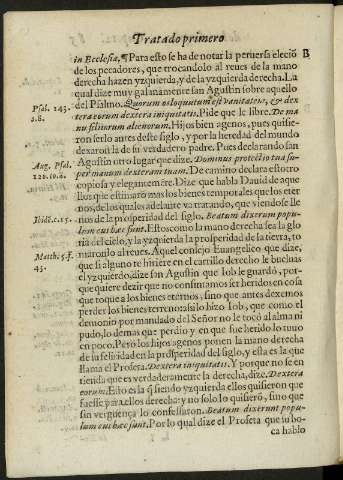 Tratado primero
in Ecclesia, ¶ Para esto se ha de notar la peruersa eleció
B
de los pecadores, que trocandolo al reues de la mano
derecha hazen yzquierda, y de la yzquierda derecha. La
qual dize muy galanamente san Agustin sobre aquello
del Psalmo. Quorum os loquutum est vanitatem, & dex
Psal. 143.
2.8.
tera eorum dextera iniquitatis. Pide que le libre. De ma-
nu filiorum alienorum. Hijos bien agenos, pues quisie-
ron ser lo antes deste siglo, y por la heredad del mundo
dexaron la de su verdadero padre. Pues declarando san
Agustin otro lugar que dize. Dominus protectio tua su-
Aug. Psal.
120. to. 8.
per manum dexteram tuam. De camino declara estotro
copiosa y elegantemẽte. Dize que habla Dauid de aque
llos que estimarõ mas los bienes temporales que los eter
nos, de los quales adelante va tratando, que viendose lle
nos de la prosperidad del siglo. Beatum dixerunt popu-
Ibidẽ. c. 15.
lum cui hæc sunt. Estos como la mano derecha sea la glo
ria del cielo, y la yzquierda la prosperidad de la tierra, to
maronlo a reues. Aquel consejo Euangelico que dize,
Matth. 5. f.
43.
que si alguno te hiriere en el carrillo derecho le bueluas
el yzquierdo, dize san Agustin que Iob le guardó, por-
que quiere dezir que no consintamos ser heridos en cosa
que toque a los bienes eternos, sino que antes dexemos
perder los bienes terrenos: assi lo hizo Iob, que como el
demonio por mandado del Señor no le tocó al alma ni
pudo, lo demas que perdio y en que fue herido lo tuuo
en poco. Pero los hijos agenos ponen la mano derecha
de su felicidad en la prosperidad del siglo, y esta es la que
llama el Profeta. Dextera iniquitatis. Y porque no se en
tienda que es verdaderamente la derecha, dize. Dextera
eorum. Esto es la q̃ siendo yzquierda ellos quisieron que
fuesse para ellos derecha: y no solo lo quisierõ, sino que
sin verguença lo confessaron. Beatum dixerunt popu-
lum cui hæc sunt. Por lo qual dize el Profeta que su bo-
ca hablo